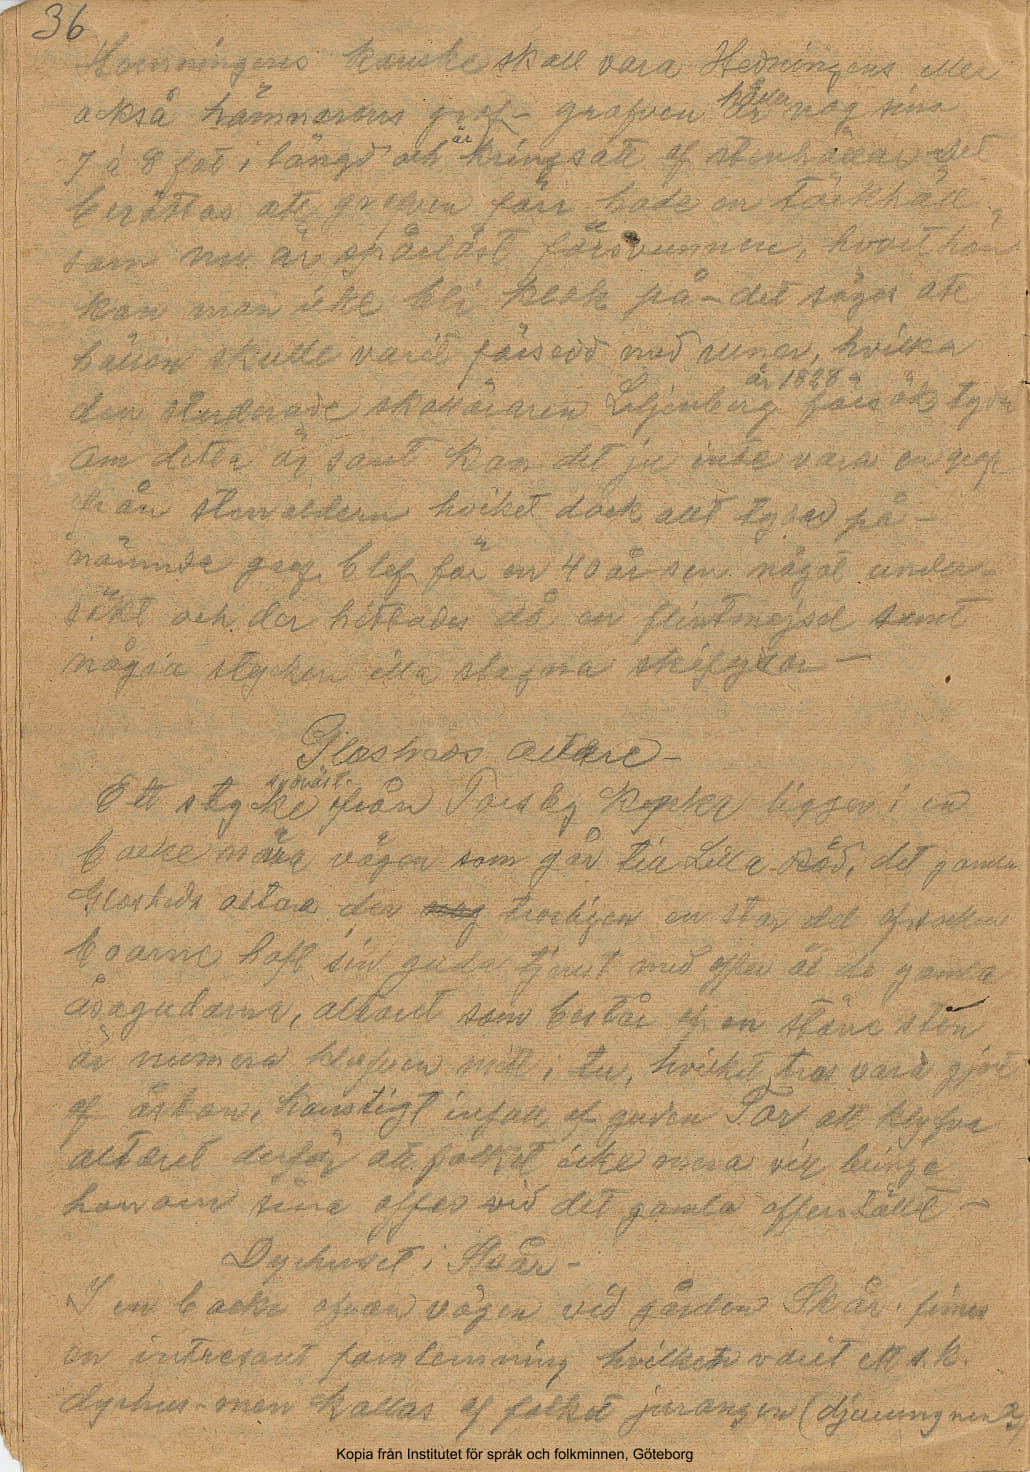 36
kanske skall vara Hedningens eller
också hämnarens graf – grafven håller nog sina
7 à 8 fot i längd och är kringsatt af stenhällar – det
berättas att grafven förr hade en täckhäll
som nu är spårlöst försvunnen, hvart hän
kan man icke bli klok på – det säges att
hällen skulle varit försedd med runor, hvilka
den studerade skolläraren Liljenberg år 1828 försökt tyda
Om detta är sant kan det ju inte vara en graf
från stenåldern hvilket dock allt tyder på –
nämnde graf blef för en 40 år sen något under-
sökt och der hittades då en flintmejsel samt
några stycken illa slagna
altare –
Ett stycke sydväst från Torsby kyrka ligger i en
backe nära vägen som går till Lilla Röd, det gamla
Glosheds altare der troligen en stor del af socken
boarne haft sin gudatjenst med offer åt de gamla
åsagudarna, altaret som består af en större sten
är numera klufven midt i tu, hvilket tros vara gjort
af åskan, konstigt infall af guden Tor att klyfva
altaret derför att folket icke mera vill bringa
honom sina offer vid det gamla offerstället –
Dyrhuset i Skår –
I en backe ofvan vägen vid gården Skår finns
en intressant fornlemning hvilken varit ett s.k.
dyrhus – men kallas af folket jurongen (djurungnen?)
Kopia från Institutet för språk och folkminnen, Göteborg